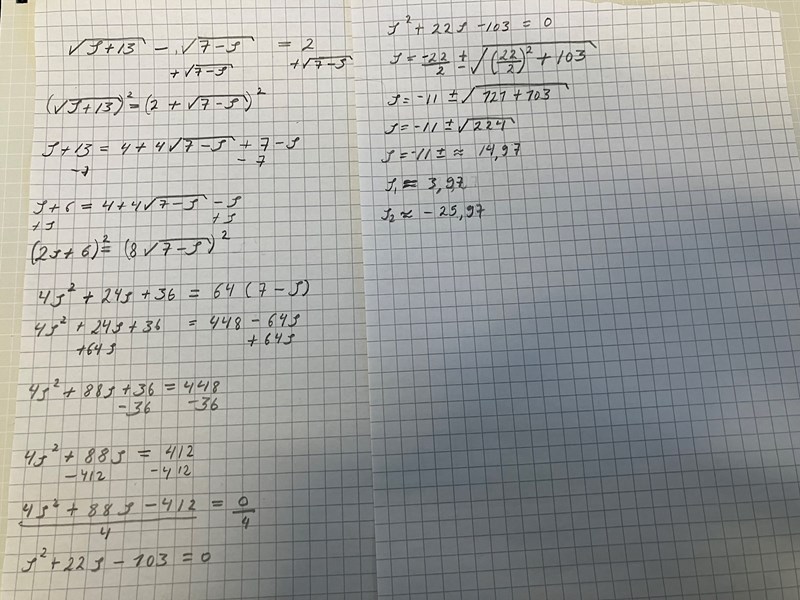 √(s+13) − √(7−s) = 2
+√(7−s) +√(7−s)
(√(s+13))² = (2 + √(7−s))²
s+13 = 4 + 4√(7−s) + 7 − s
−7 − 7
s+6 = 4+4√(7−s) − s
+s +s
(2s+6)² = (8√(7−s))²
4s² + 24s + 36 = 64 (7−s)
4s² + 24s + 36 = 448 − 64s
+64s +64s
4s² + 88s + 36 = 448
−36 −36
4s² + 88s = 412
−412 −412
(4s² + 88s − 412)/4 = 0/4
s² + 22s − 103 = 0
s² + 22s − 103 = 0
s = −22/2 ± √((22/2)² + 103)
s = −11 ± √(121 + 103)
s = −11 ± √224
s = −11 ± ≈ 14,97
s₁ = 3,97
s₂ ≈ − 25,97